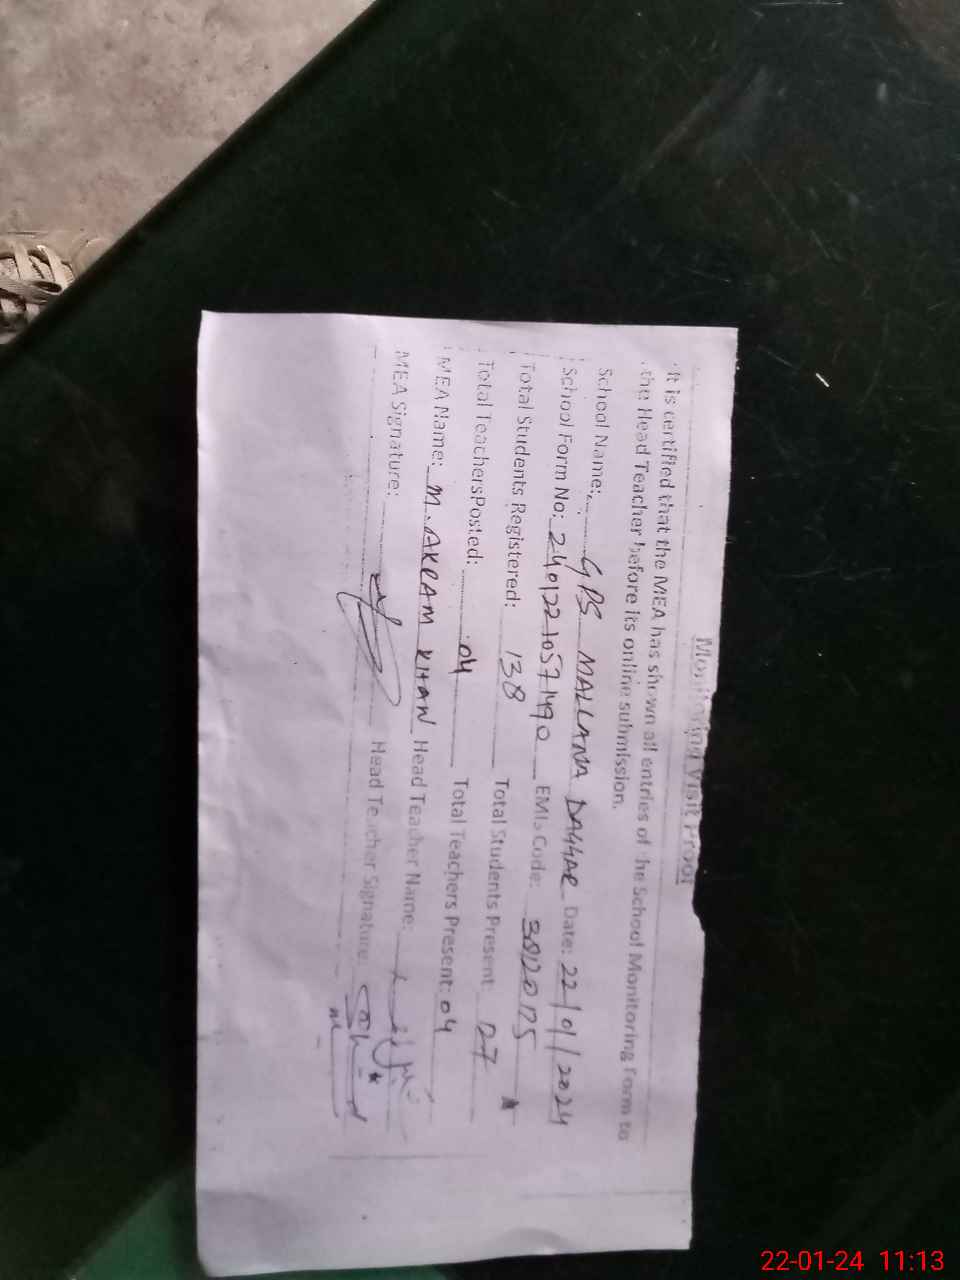 Monitoring Visit Proof
It is certified that the MEA has shown all entries of the School Monitoring Form to
the Head Teacher before its online submission.
School Name: GPS MALLANA DAGGAR Date: 22/01/2024
School Form No: 24012210571490 EMIS Code:
Total Students Registered: 138 Total Students Present:
Total Teachers Posted: 04 Total Teachers Present: 04
MEA Name: M. AKRAM KHAN Head Teacher Name:
MEA Signature: Head Teacher Signature:
22-01-24 11:13